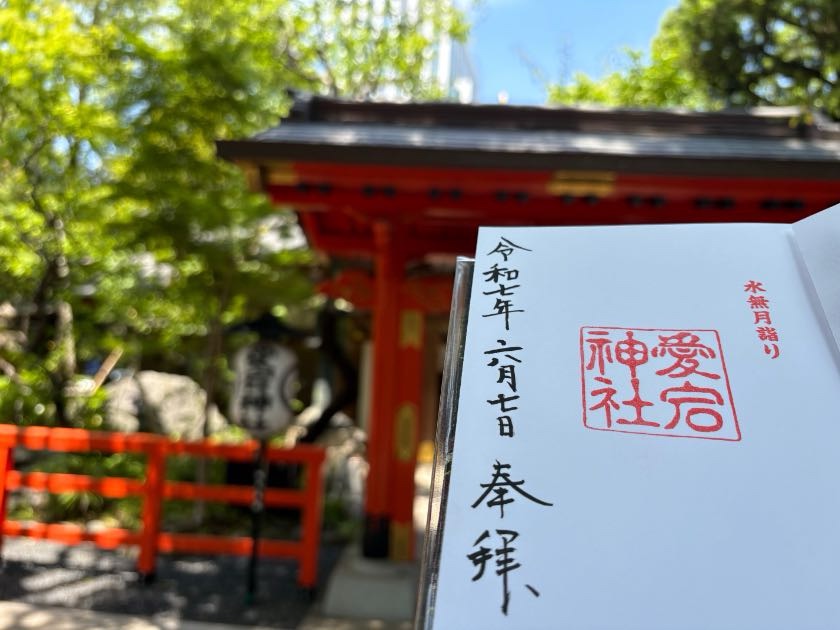 水無月詣り
愛宕
神社
令和七年 六月七日 奉拝